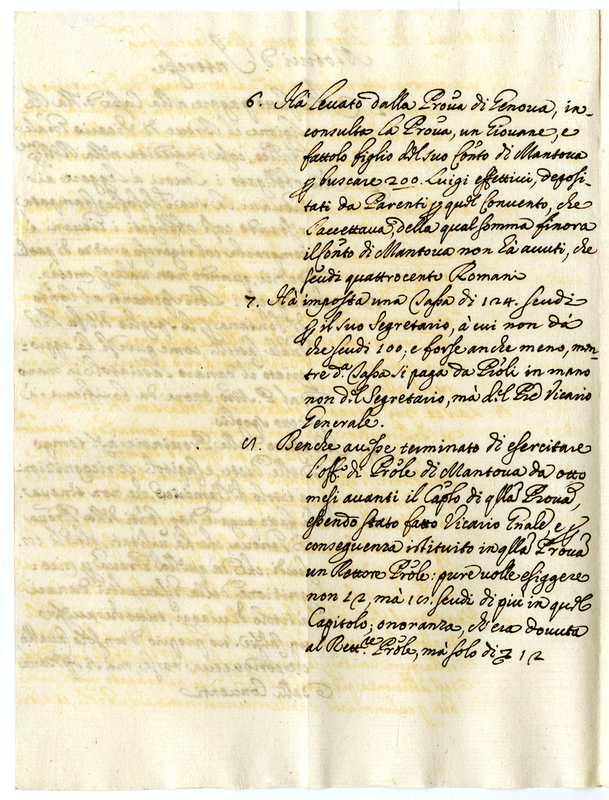 6. Hà levato dalla Prova di Genova, in-
consulta la Prova, un Giovane, e
fattolo figlio del suo Conto di Mantova
p buscare 200. Luigi effettivi, deposi-
tati da Parenti p quel Convento, che
l'accettava, della qual somma finora
il Conto di Mantova non hà avuti, che
scudi quattrocento Romani
7. Hà imposta una Tassa di 124. scudi
p il suo Segretario, à cui non dà
che scudi 100, e forse anche meno, men-
tre da Tassa si paga da Proli in mano
non del Segretario, mà del Pre Vicario
Generale.
8. Benche avesse terminato di esercitare
l'offo di Prole di Mantova da otto
mesi avanti il Caplo di qlla Prova,
essendo stato fatto Vicario Gnale, e p
conseguenza istituito in qlla Prova
un Rettore Prole: pure volle esiggere
non 12, mà 18. scudi di più in quel
Capitolo; onoranza, ch'era dovuta
al Rette Prole, mà solo di 12